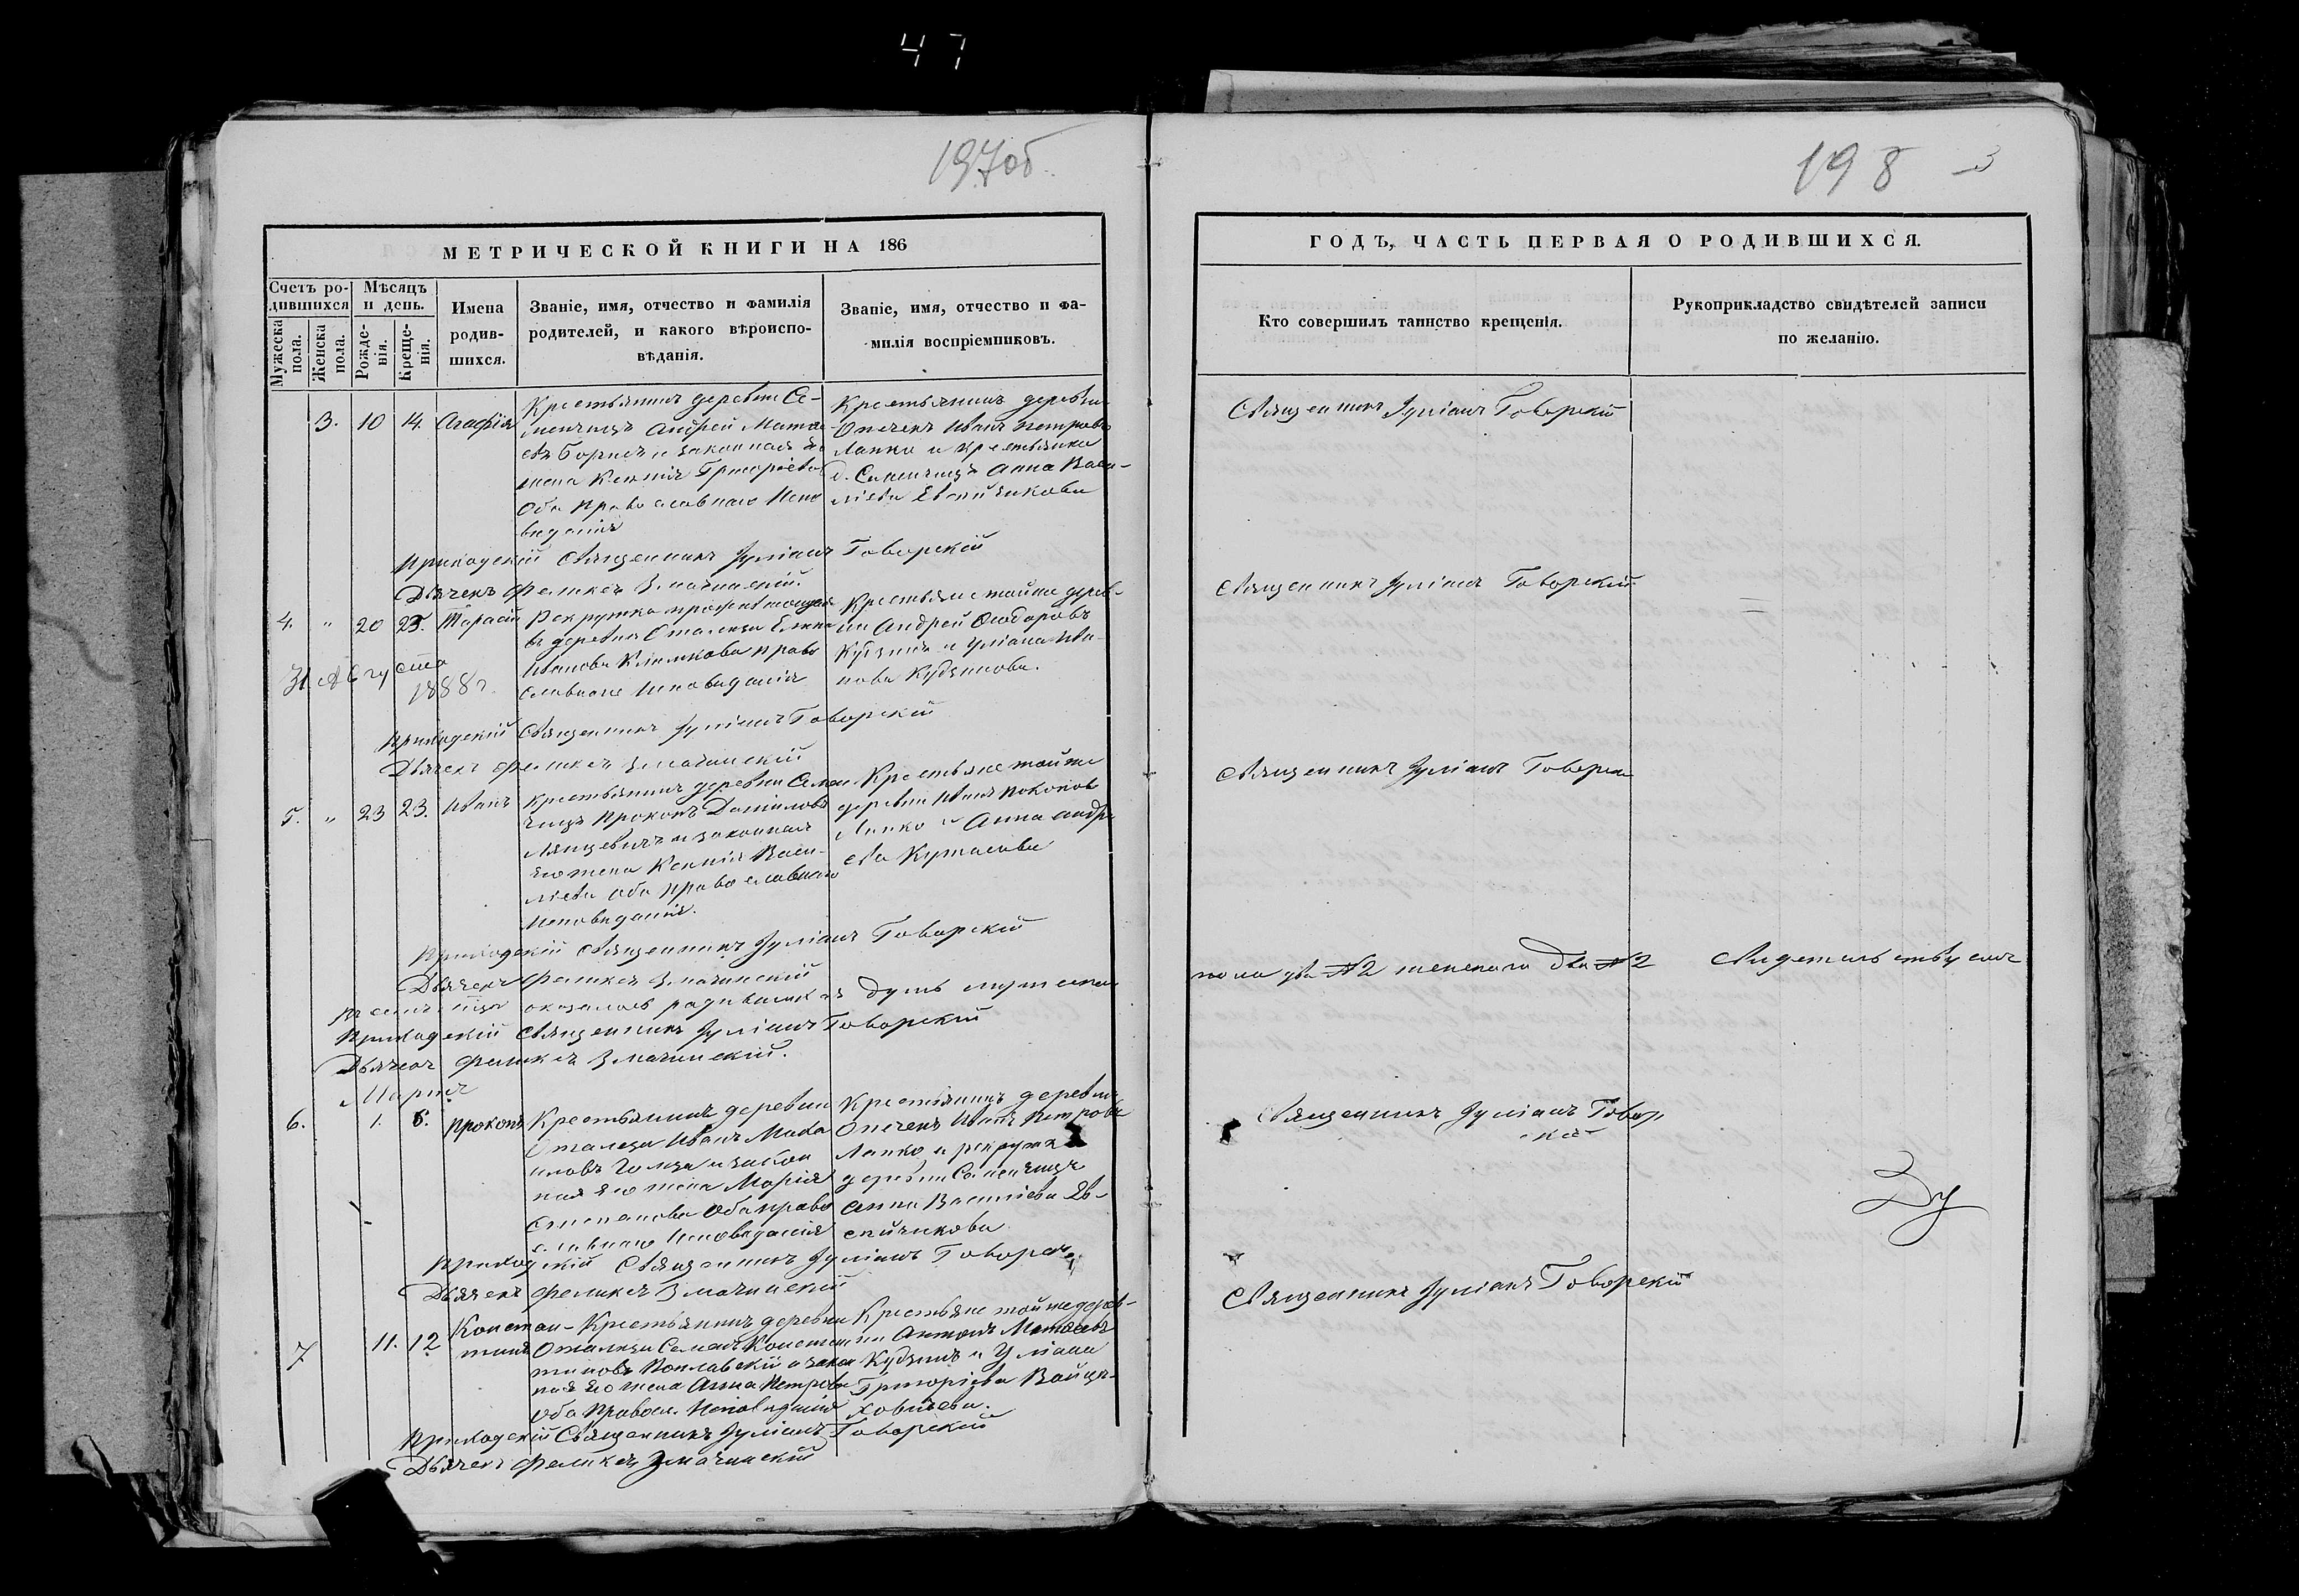 47
197об.
198
3
МЕТРИЧЕСКОЙ КНИГИ НА 186
Счетъ ро-
дившихся
Мужеска пола.
Женска пола.
Мѣсяцъ
и день.
Рожде-
нія.
Креще-
нія.
Имена
родив-
шихся.
Званіе, имя, отчество и фамилія
родителей, и какого вѣроиспо-
вѣданія.
Званіе, имя, отчество и фа-
милія воспріемниковъ.
ГОДЪ, ЧАСТЬ ПЕРВАЯ О РОДИВШИХСЯ.
Кто совершилъ таинство крещенія.
Рукоприкладство свидѣтелей записи
по желанію.
3. 10 14. Агафія
Крестьянинъ деревни Се-
Андрей
и законная
жена Ксенія Григоріева
Оба православнаго Испо
веданія
Крестьянинъ деревни
Опечекъ Иванъ Петровъ
Лапко и крестьянка
д. Анна Васи-
ліева
Священникъ Іуліанъ Говорскій
Приходскій Священникъ Іуліанъ Говорскій
Дьячекъ Феликсъ Змачинскій.
4. " 20 25. Тарасій
Рекрутка
въ деревни Сталези Елена
Иванова Климкова право
славнаго Исповеданія
Крестьяне тойже дерев-
ни Андрей Ѳеодоровъ
Кудзинъ и Уліана Ива-
нова Кудзинова.
31 Августа
1888 г.
Священникъ Іуліанъ Говорскій
Приходскій Священникъ Іуліанъ Говорскій
Дьячекъ Феликсъ Змачинскій
5. " 23 23. Иванъ
Крестьянинъ деревни
Прокопъ Даниловъ
и законная
его жена Ксенія Васи-
ліева оба православнаго
Исповеданія.
Крестьяне тойже
деревни Иванъ
Лапко и Анна Андре
ева
Священникъ Іуліанъ Говорск
Приходскій Священникъ Іуліанъ Говорскій
Дьячекъ Феликсъ Змачинскій
оказалось родившихся душъ мужеска
пола два № 2 женскаго два № 2 Свидетельствуемъ
Приходскій Священникъ Іуліанъ Говорскій
Дьячекъ Феликсъ Змачинскій.
Мартъ
6. 1. 6. Прокопъ
Крестьянинъ деревни
Сталези Иванъ Миха
иловъ и закон
ная его жена Марія
Степанова Оба право
славнаго Исповеданія
Крестьянинъ деревни
Опечекъ Иванъ Петровъ
Лапко и рекрутка
деревни
Анна Василіева
Священникъ Іуліанъ Говор
скій
Приходскій Священникъ Іуліанъ Говорск
Дьячекъ Феликсъ Змачинскій
7 11. 12
Констан-
тинъ
Крестьянинъ деревни
Сталези Семенъ Констан
тиновъ Поплавскій и закон
ная его жена Анна Петрова
Оба Правосл. Исповеданія
Крестьяне тойже дерев-
ни Антонъ Матвеевъ
Кудзинъ и Уліана
Григоріева Войце-
ховичева.
Священникъ Іуліанъ Говорскій
Приходскій Священникъ Іуліанъ Говорскій
Дьячекъ Феликсъ Змачинскій